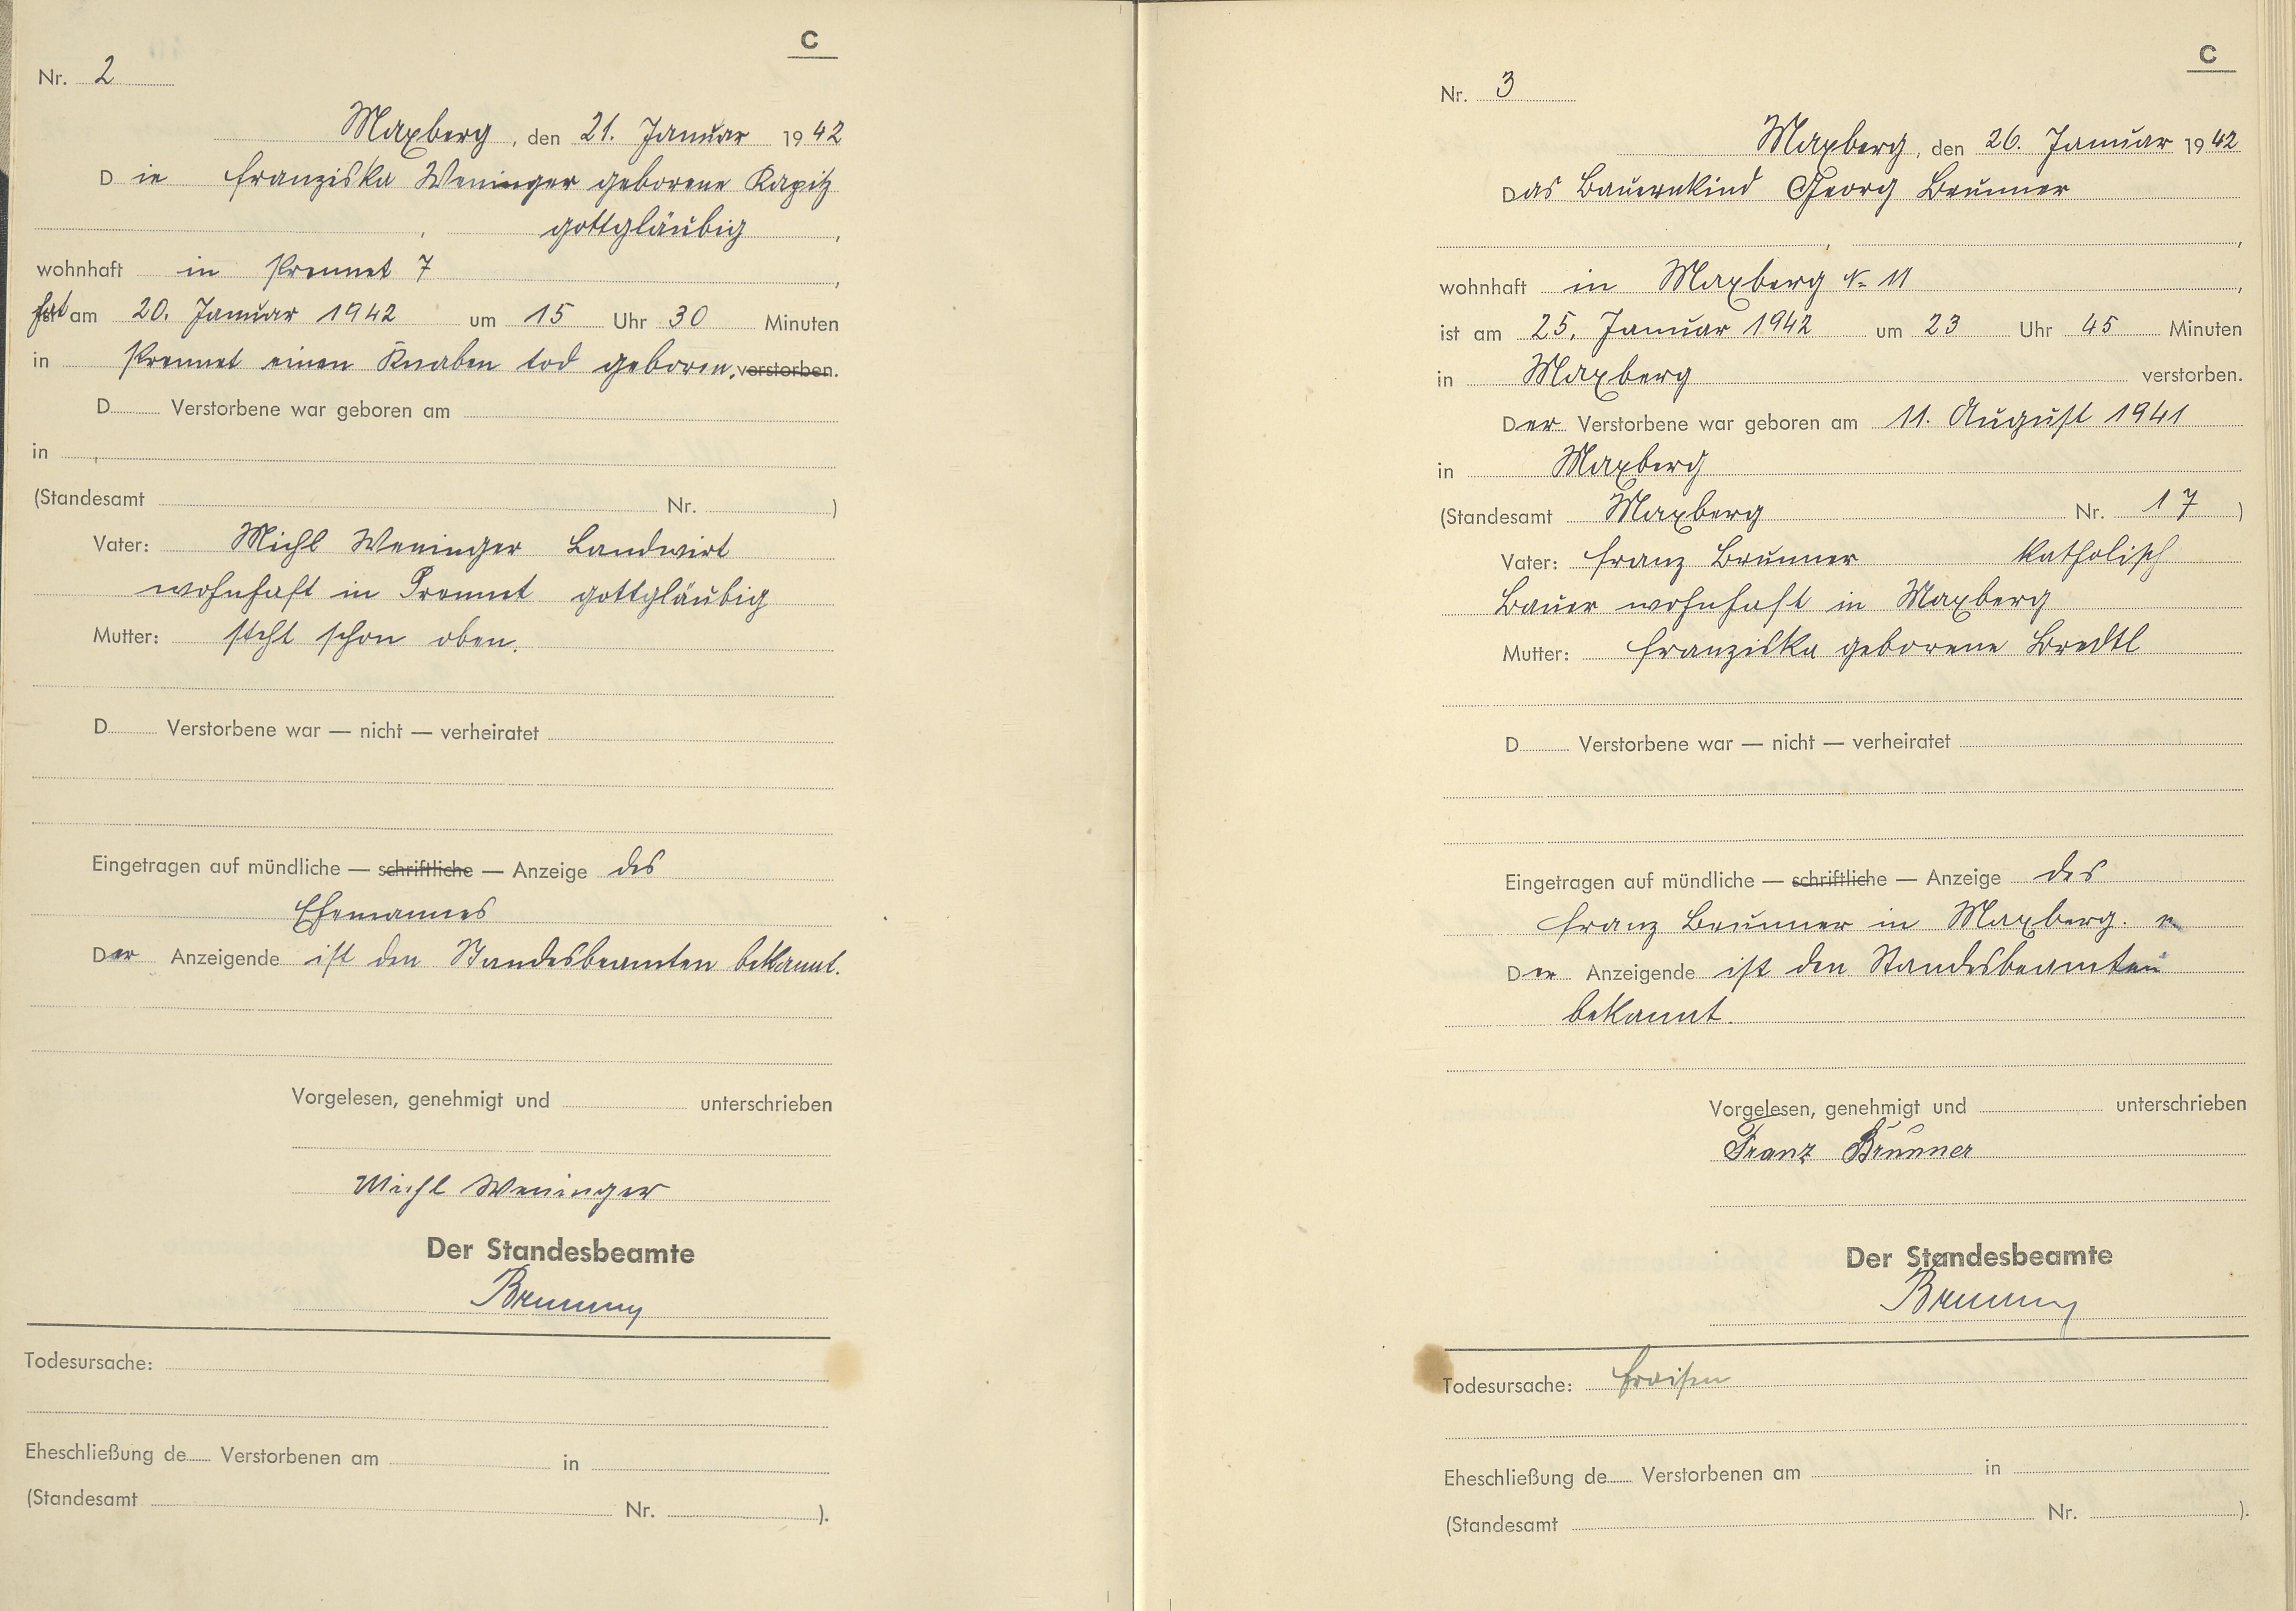 C
Nr. 2
Maxberg, den 21. Januar 1942
Die Franziska Weninger geborene Kapitz
, gottgläubig,
wohnhaft in Prennet 7,
hat am 20. Januar 1942 um 15 Uhr 30 Minuten
in Prennet einen Knaben tod geboren. verstorben.
D Verstorbene war geboren am
in
(Standesamt Nr. )
Vater: Michl Weninger Landwirt
wohnhaft in Prennet gottgläubig
Mutter: steht schon oben.
D Verstorbene war — nicht — verheiratet
Eingetragen auf mündliche — schriftliche — Anzeige des
Ehemannes
Der Anzeigende ist den Standesbeamten bekannt.
Vorgelesen, genehmigt und unterschrieben
Michl Weninger
Der Standesbeamte
Todesursache:
Eheschließung de Verstorbenen am in
(Standesamt Nr. ).
C
Nr. 3
Maxberg, den 26. Januar 1942
Das Bauernkind Georg Brunner
, ,
wohnhaft in Maxberg N= 11,
ist am 25. Januar 1942 um 23 Uhr 45 Minuten
in Maxberg verstorben.
Der Verstorbene war geboren am 11. August 1941
in Maxberg
(Standesamt Maxberg Nr. 17 )
Vater: Franz Brunner katholisch
Bauer wohnhaft in Maxberg
Mutter: Franziska geborene Bredtl
D Verstorbene war — nicht — verheiratet
Eingetragen auf mündliche — schriftliche — Anzeige des
Franz Brunner in Maxberg.
Der Anzeigende ist den Standesbeamten
bekannt.
Vorgelesen, genehmigt und unterschrieben
Franz Brunner
Der Standesbeamte
Todesursache: Fraisen
Eheschließung de Verstorbenen am in
(Standesamt Nr. ).